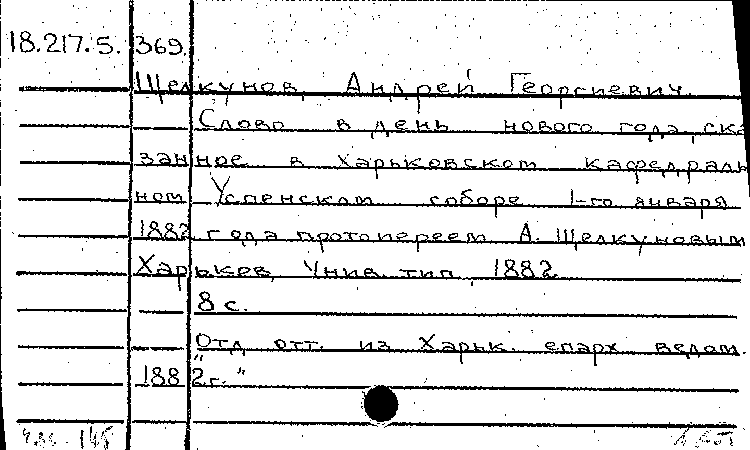 18.217.5. 369.
Щелкунов, Андрей Георгиевич.
Слово в день нового года, ска
занное в Харьковском кафедраль
ном Успенском соборе 1-го января
1882 года протоиереем А. Щелкуновым
Харьков, Унив. тип., 1882.
8 с.
Отд. отт. из "Харьк. епарх. ведом.
1882г."